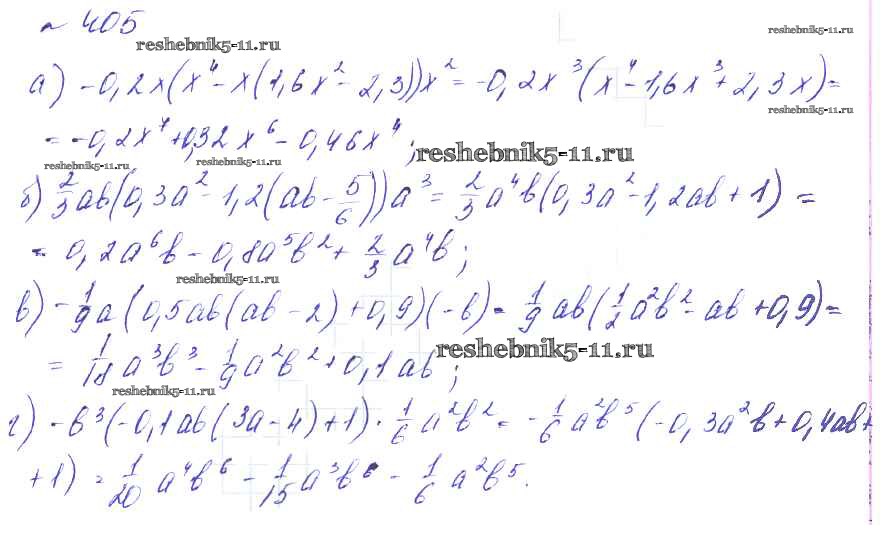 № 405
reshebnik5-11.ru
reshebnik5-11.ru
а) -0,2x(x⁴ - x(1,6x² - 2,3))x² = -0,2x³(x⁴ - 1,6x³ + 2,3x) =
reshebnik5-11.ru
= -0,2x⁷ + 0,32x⁶ - 0,46x⁴; reshebnik5-11.ru
reshebnik5-11.ru reshebnik5-11.ru
б) 2/3 ab(0,3a² - 1,2(ab - 5/6))a³ = 2/3 a⁴b(0,3a² - 1,2ab + 1) =
= 0,2a⁶b - 0,8a⁵b² + 2/3 a⁴b;
reshebnik5-11.ru
в) -1/9 a(0,5ab(ab - 2) + 0,9)(-b) = 1/9 ab(1/2 a²b² - ab + 0,9) =
= 1/18 a³b³ - 1/9 a²b² + 0,1ab; reshebnik5-11.ru
reshebnik5-11.ru
г) -b³(-0,1ab(3a - 4) + 1) · 1/6 a²b² = -1/6 a²b⁵(-0,3a²b + 0,4ab +
+ 1) = 1/20 a⁴b⁶ - 1/15 a³b⁶ - 1/6 a²b⁵.